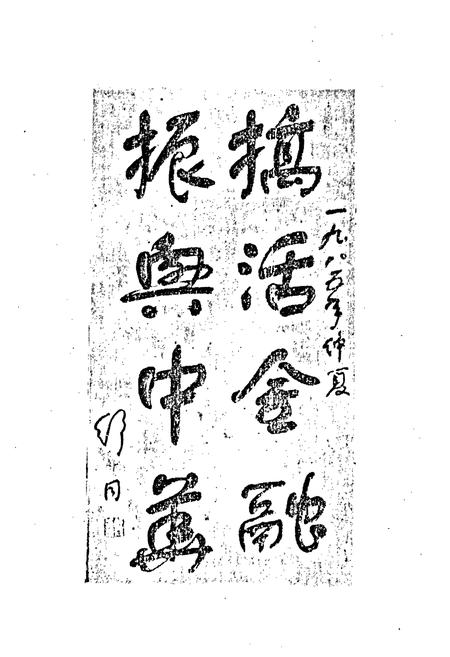 一九八五年仲夏
搞活金融
振興中華
舒同